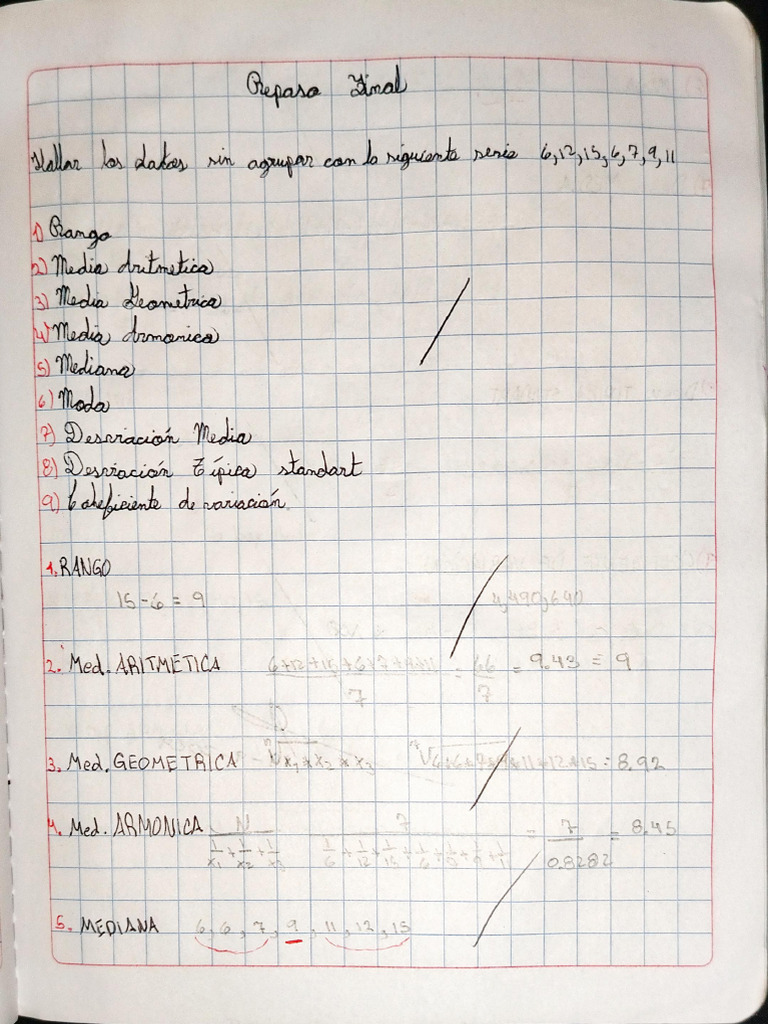 Repaso Final
Hallar los datos sin agrupar con la siguiente serie 6,12,15,6,7,9,11
1) Rango
2) Media Aritmetica
3) Media Geometrica
4) Media Armonica
5) Mediana
6) Moda
7) Desviación Media
8) Desviación Típica standart
9) Coheficiente de variación
1. RANGO
15-6 = 9
4,490,640
2. Med. ARITMETICA 6+12+15+6+7+9+11 / 7 = 66 / 7 = 9.43 = 9
3. Med. GEOMETRICA ⁿ√x₁*x₂*x₃ ⁷√6*6*7*9*11*12*15 = 8.92
4. Med. ARMONICA N / 1/x₁+1/x₂+1/x₃ = 7 / 0.8282 = 8.45
5. MEDIANA 6, 6, 7, 9, 11, 12, 15